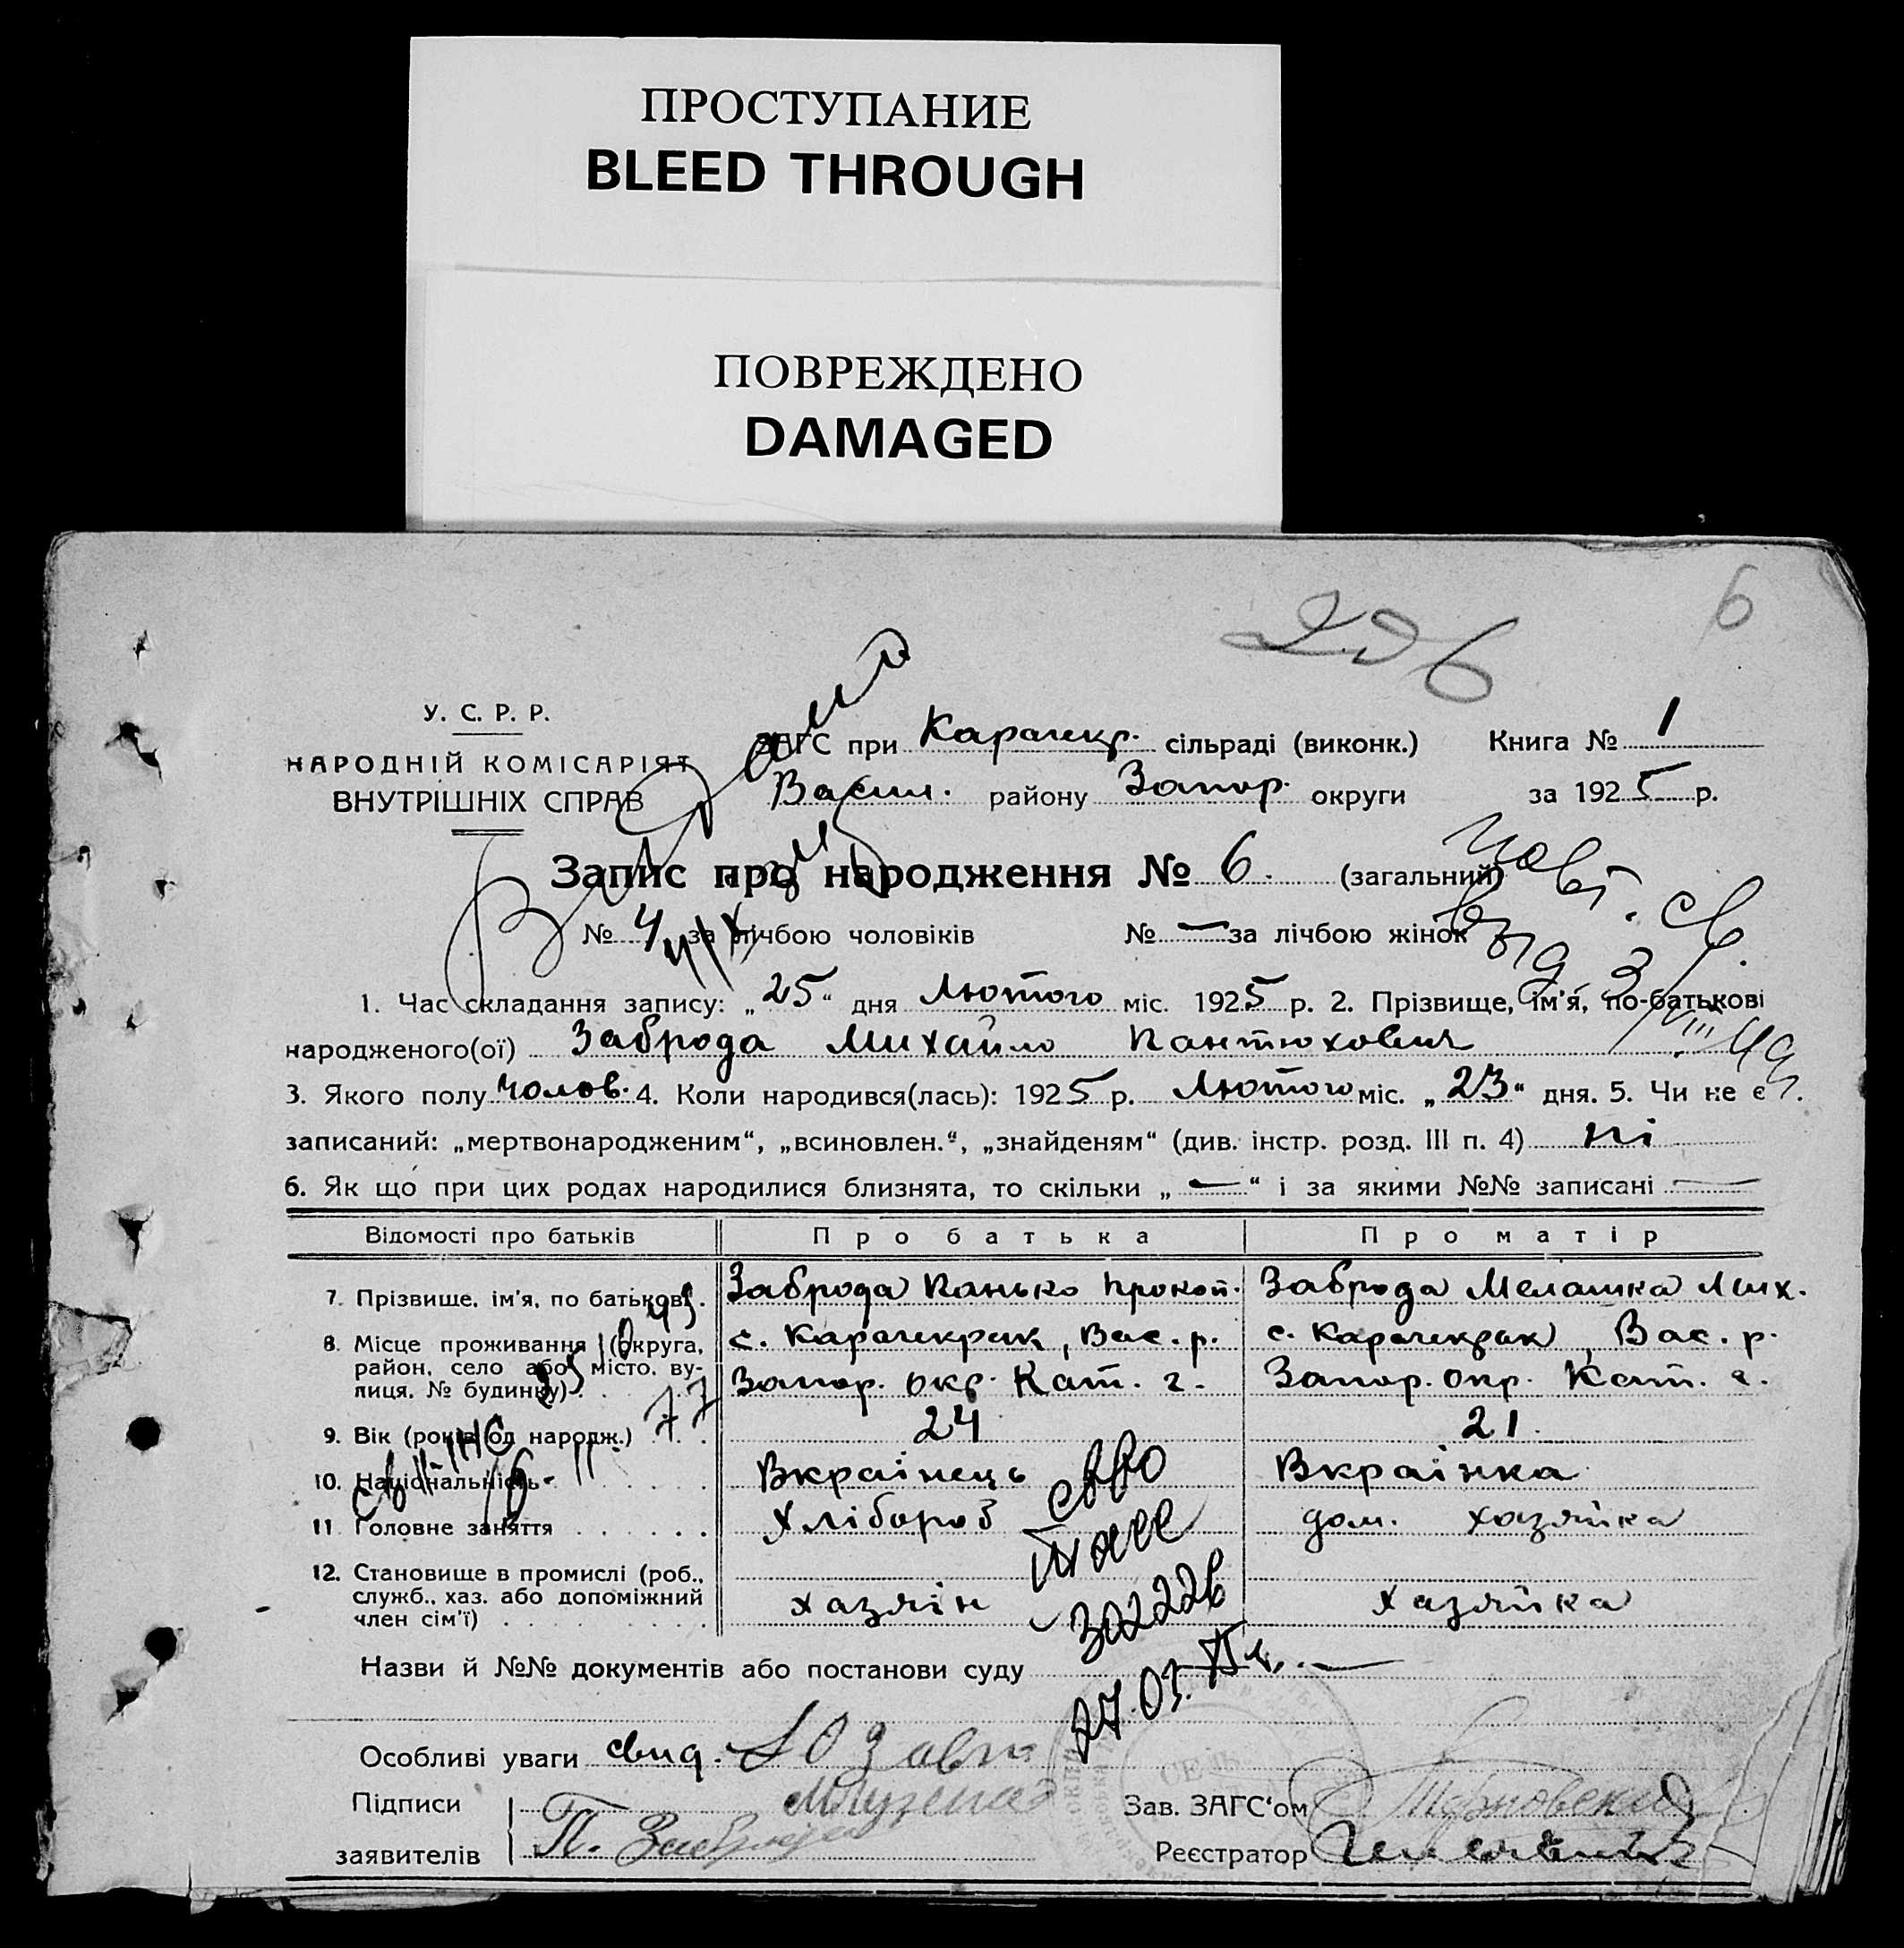 ПРОСТУПАНИЕ
BLEED THROUGH
ПОВРЕЖДЕНО
DAMAGED
6
У. С. Р. Р.
НАРОДНІЙ КОМІСАРІЯТ
ВНУТРІШНІХ СПРАВ
ЗАГС при Карачекр. сільраді (виконк.) Книга № 1
Васил. району Запор. округи за 1925 р.
Запис про народження № 6. (загальний)
№ 4 за лічбою чоловіків № — за лічбою жінок
1. Час складання запису: „25“ дня Лютого міс. 1925 р. 2. Прізвище, ім'я, по-батькові
народженого(ої) Заброда Михайло Пантюхович
3. Якого полу чолов. 4. Коли народився(лась): 1925 р. Лютого міс. „23“ дня. 5. Чи не є
записаний: „мертвонародженим“, „всиновлен.“, „знайденям“ (див. інстр. розд. III п. 4) ні
6. Як що при цих родах народилися близнята, то скільки „—“ і за якими №№ записані —
Відомості про батьків Про батька Про матір
7. Прізвище, ім'я, по батькові. Заброда Панько Прокоп. Заброда Мелашка Мих.
8. Місце проживання (округа, район, село або місто, вулиця, № будинку) с. Карачекрак, Вас. р. с. Карачекрак, Вас. р.
Запор. окр. Кат. г. Запор. окр. Кат. г.
9. Вік (років од народж.) 24 21.
10. Національність Вкраінець Вкраінка
11. Головне заняття Хлібороб дом. хазяйка
12. Становище в промислі (роб., служб., хаз. або допоміжний член сім'ї) хазяін хазяйка
302226
27.03.
Назви й №№ документів або постанови суду —
Особливі уваги свид.
Підписи
заявителів П. Заброда
Зав. ЗАГС'ом
Реєстратор